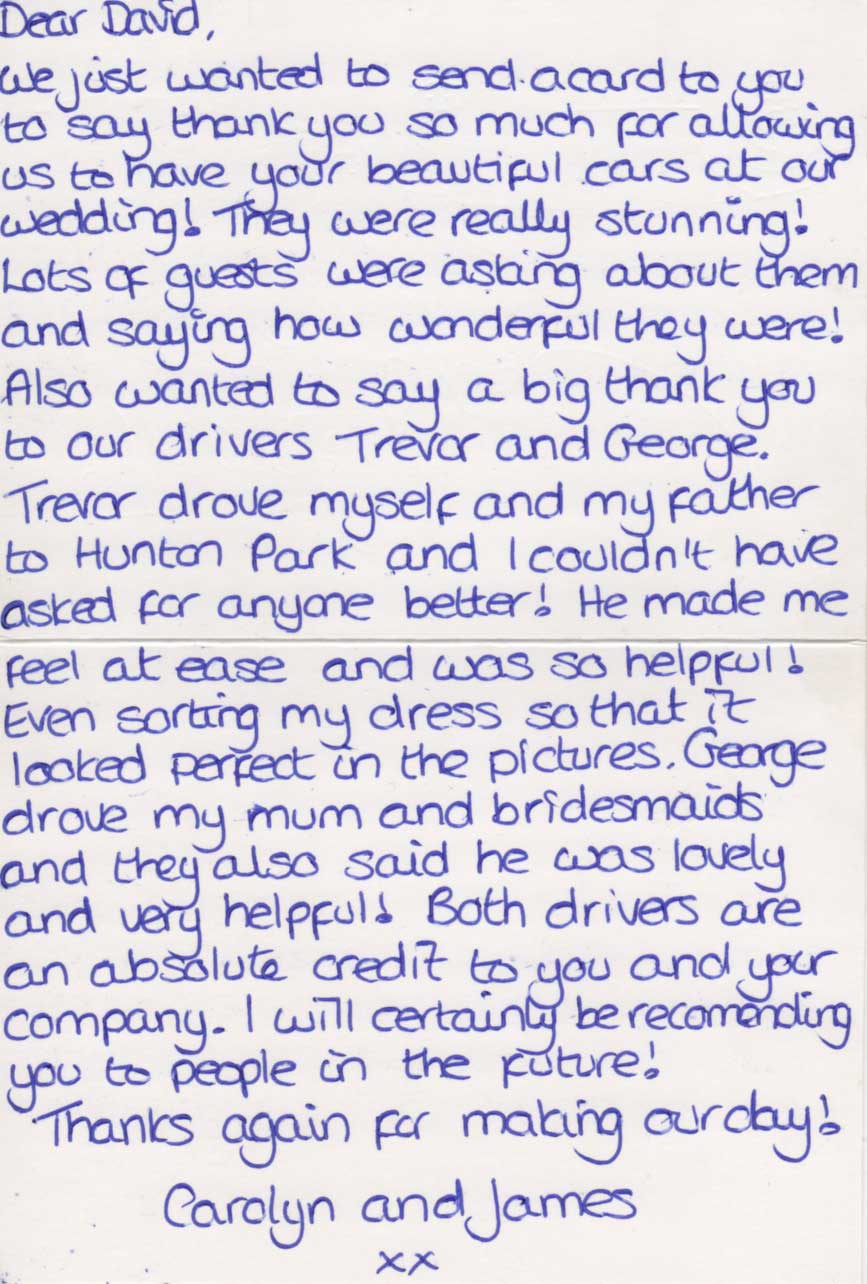 Dear David,
We just wanted to send a card to you
to say thank you so much for allowing
us to have your beautiful cars at our
wedding! They were really stunning!
Lots of guests were asking about them
and saying how wonderful they were!
Also wanted to say a big thank you
to our drivers Trevor and George.
Trevor drove myself and my father
to Hunton Park and I couldn't have
asked for anyone better! He made me
feel at ease and was so helpful!
Even sorting my dress so that it
looked perfect in the pictures. George
drove my mum and bridesmaids
and they also said he was lovely
and very helpful! Both drivers are
an absolute credit to you and your
company. I will certainly be recomending
you to people in the future!
Thanks again for making our day!
Carolyn and James
xx